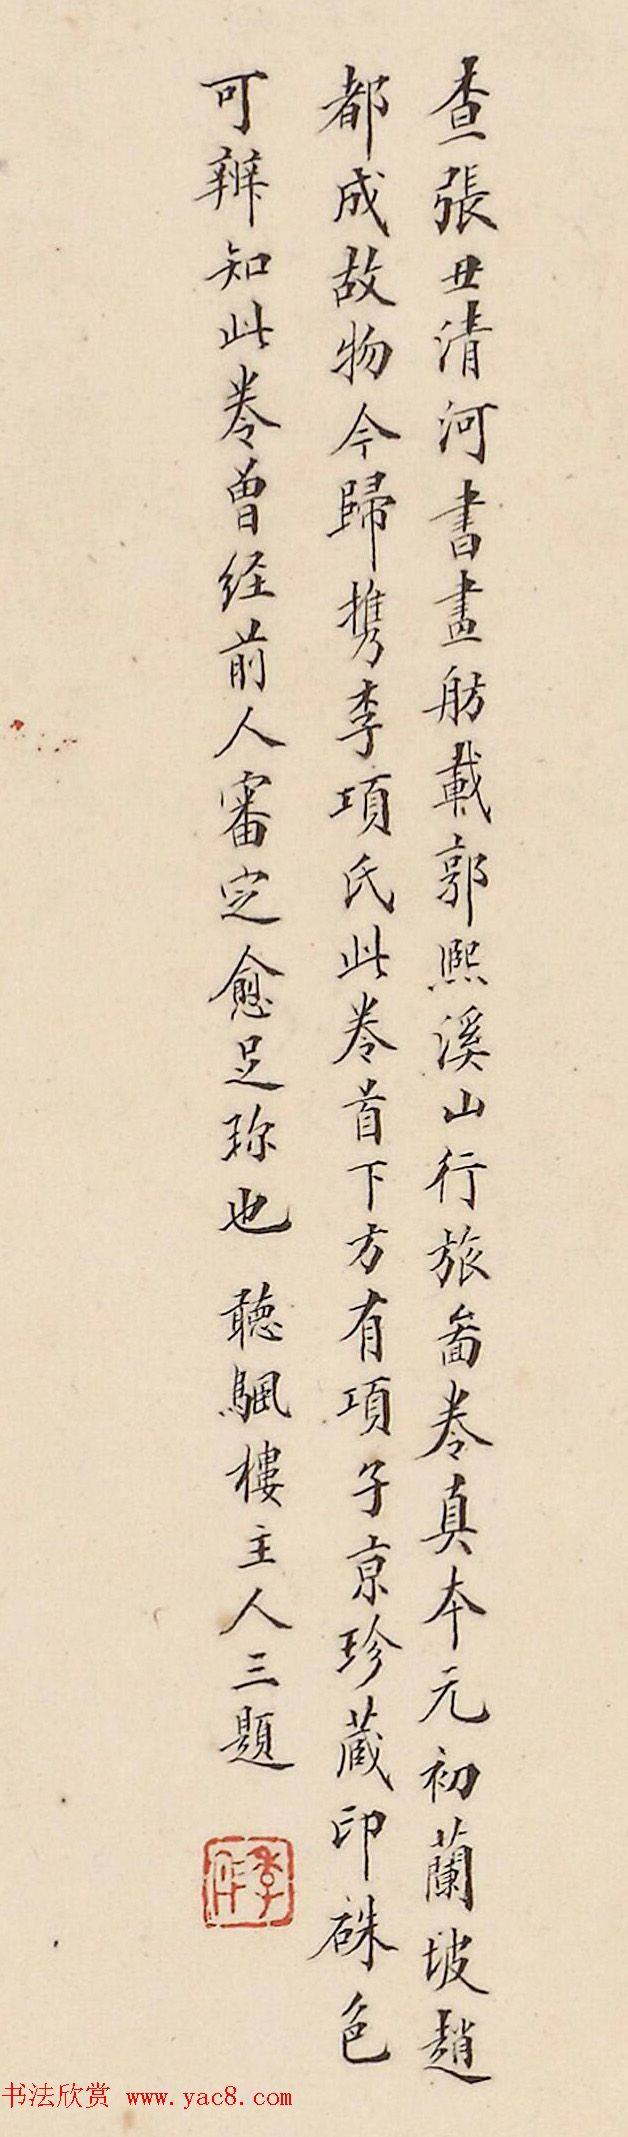 查張丑清河書畫舫載郭熙溪山行旅啚卷真本元初蘭坡趙
都成故物今歸携李項氏此卷首下方有項子京珍蔵印硃色
可辨知此卷曾经前人審定愈足珎也 聽颿樓主人三題
季彤
书法欣赏 www.yac8.com